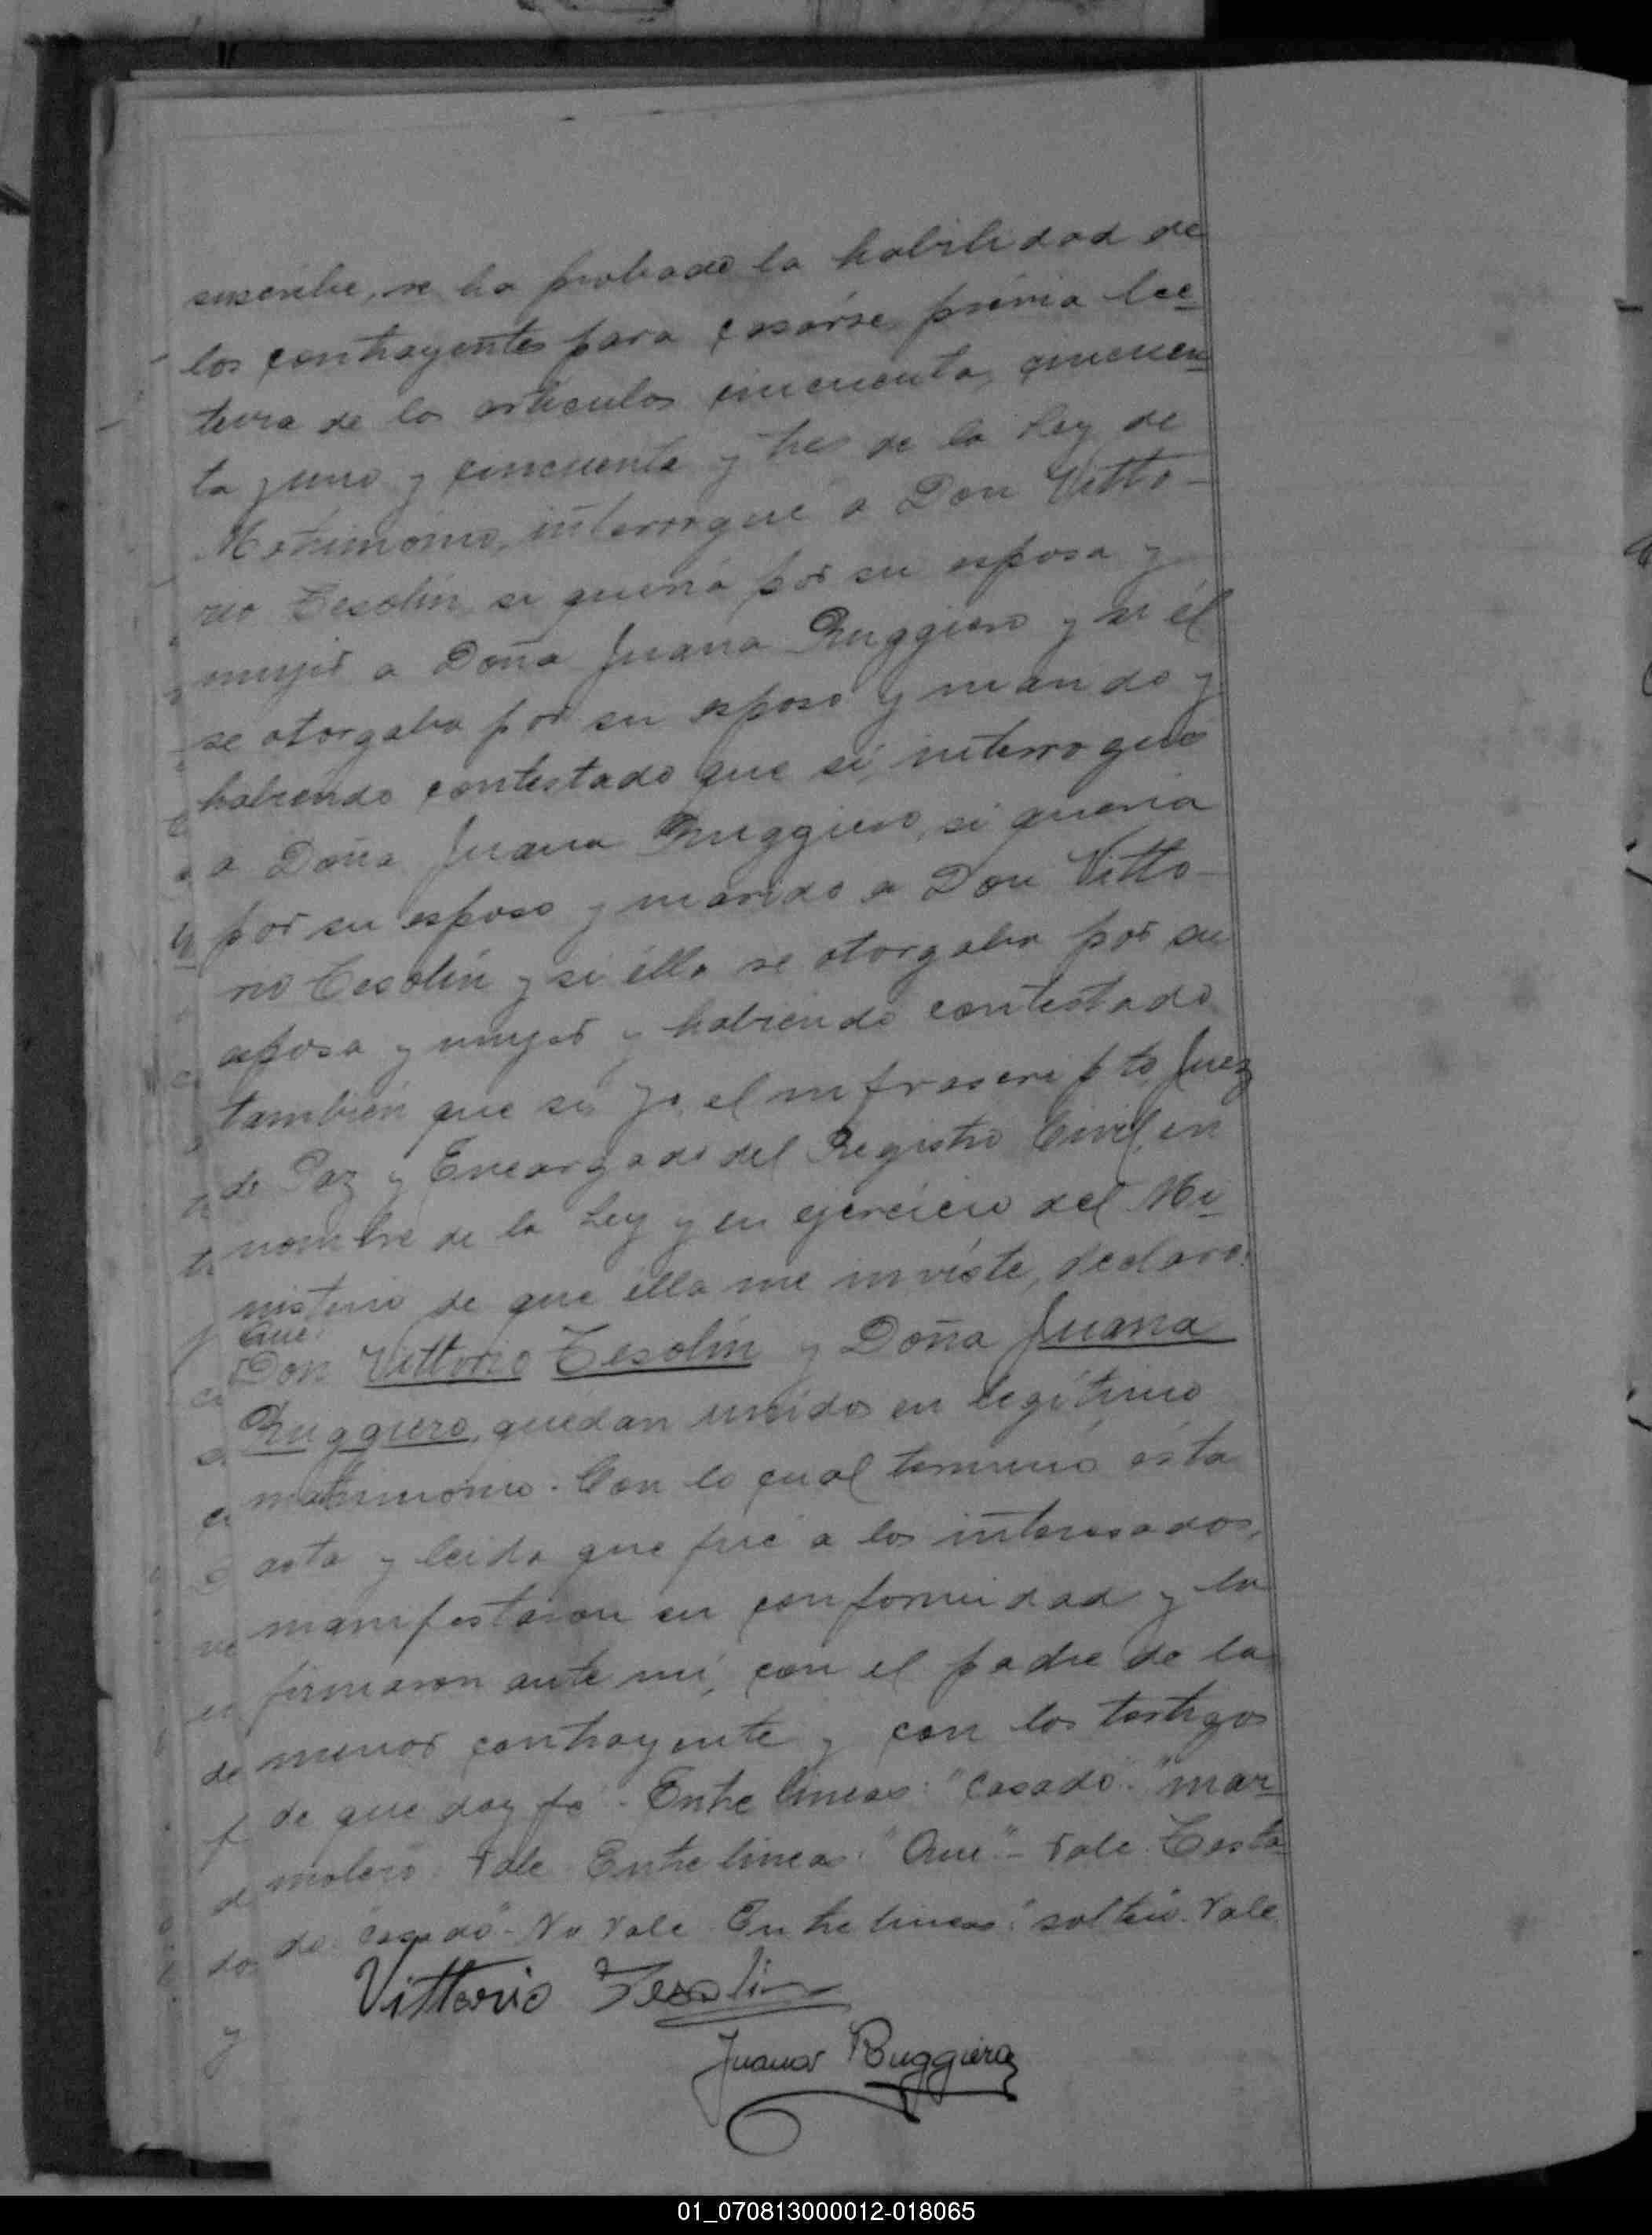 suscribe, se ha probado la habilidad de
los contrayentes para casárse, prévia lec
tura de los artículos cincuenta, cincuen
ta y uno y cincuenta y tres de la Ley de
Matrimonio, interrogué a Don Vitto-
rio Tesolín si quería por su esposa y
mujer a Doña Juana Ruggiero y si él
se otorgaba por su esposo y marido y
habiendo contestado que sí, interrogué
a Doña Juana Ruggiero, si quería
por su esposo y marido a Don Vitto-
rio Tesolín y si élla se otorgaba por su
esposa y mujer y habiendo contestado
también que sí, yo, el infrascripto Juez
de Paz y Encargado del Registro Civil, en
nombre de la Ley y en ejercicio del Mi
nisterio de que élla me invíste, declaro:
Que:
Don Vittorio Tesolín y Doña Juana
Ruggiero, quedan unidos en legítimo
matrimonio. Con lo cual terminó ésta
acta y leída que fué a los interesados,
manifestaron su conformidad y la
firmaron ante mí, con el padre de la
menor contrayente y con los testigos
de que doy fé. Entre líneas: "Casado". "mar
molero". Vale. Entre líneas: "Que" - Vale. Testa
do: "casado" - No Vale. Entre líneas: "soltero". Vale
Vittorio Tesolin
Juana Ruggiero
01_070813000012-018065